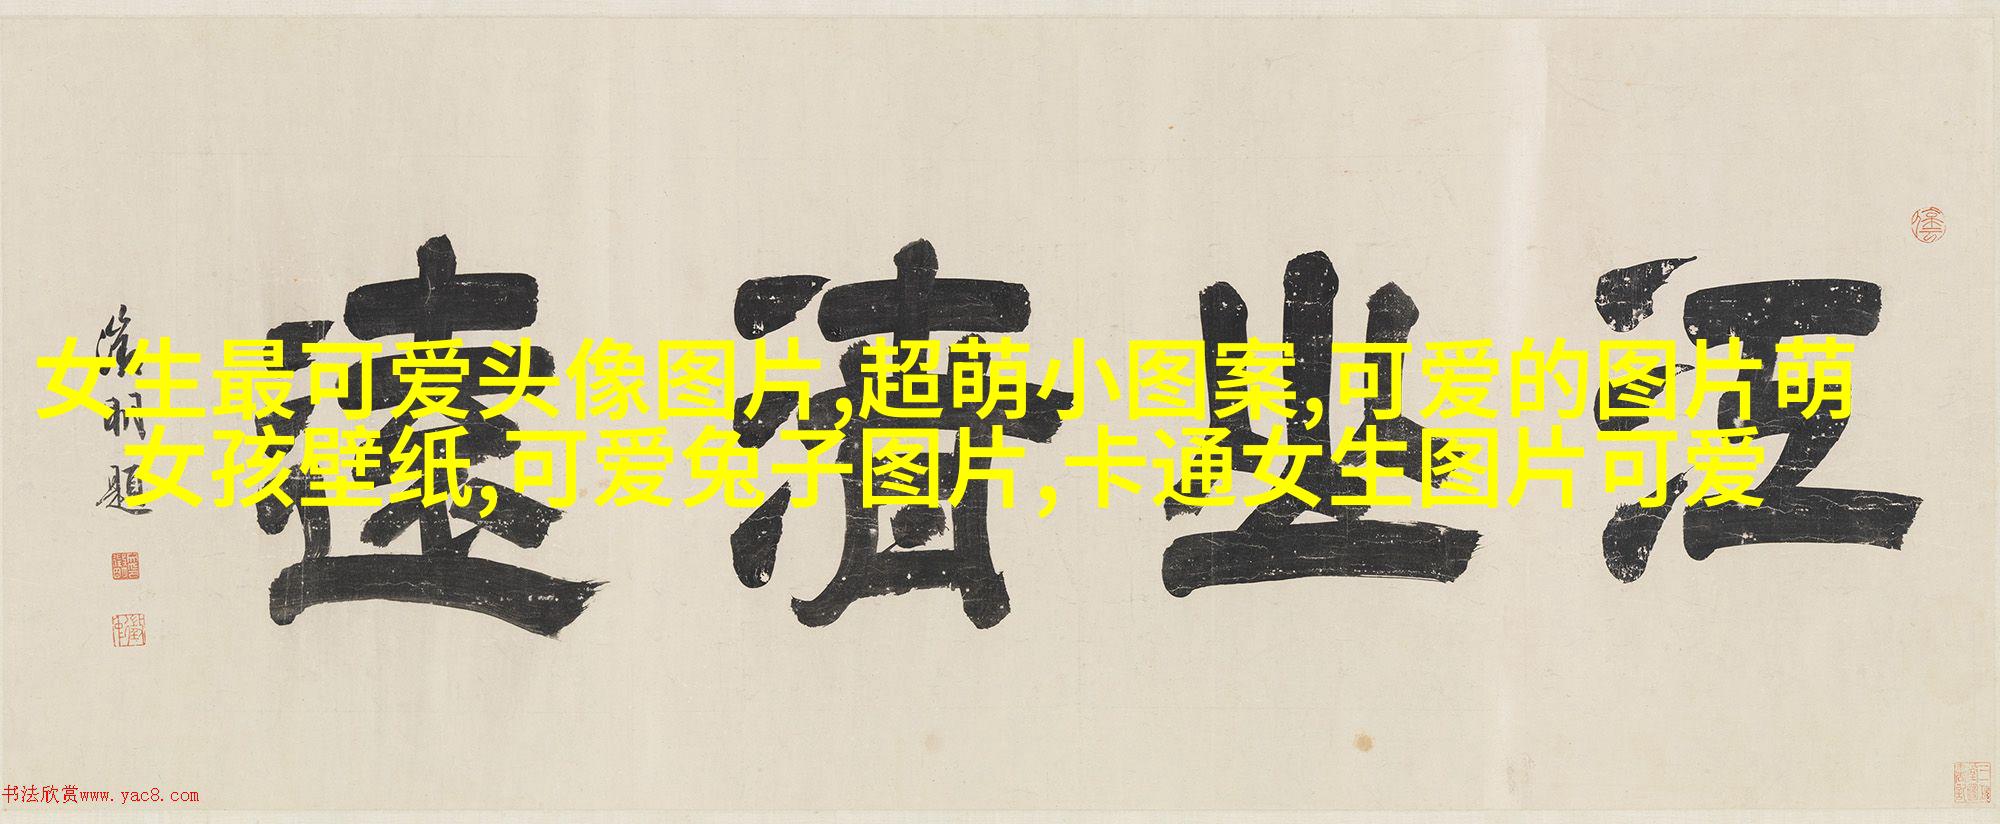 江山清遠
徵明題
女生最可爱头像图片,超萌小图案,可爱的图片萌
女孩壁纸,可爱兔子图片,卡通女生图片可爱
书法欣赏www.yac8.com